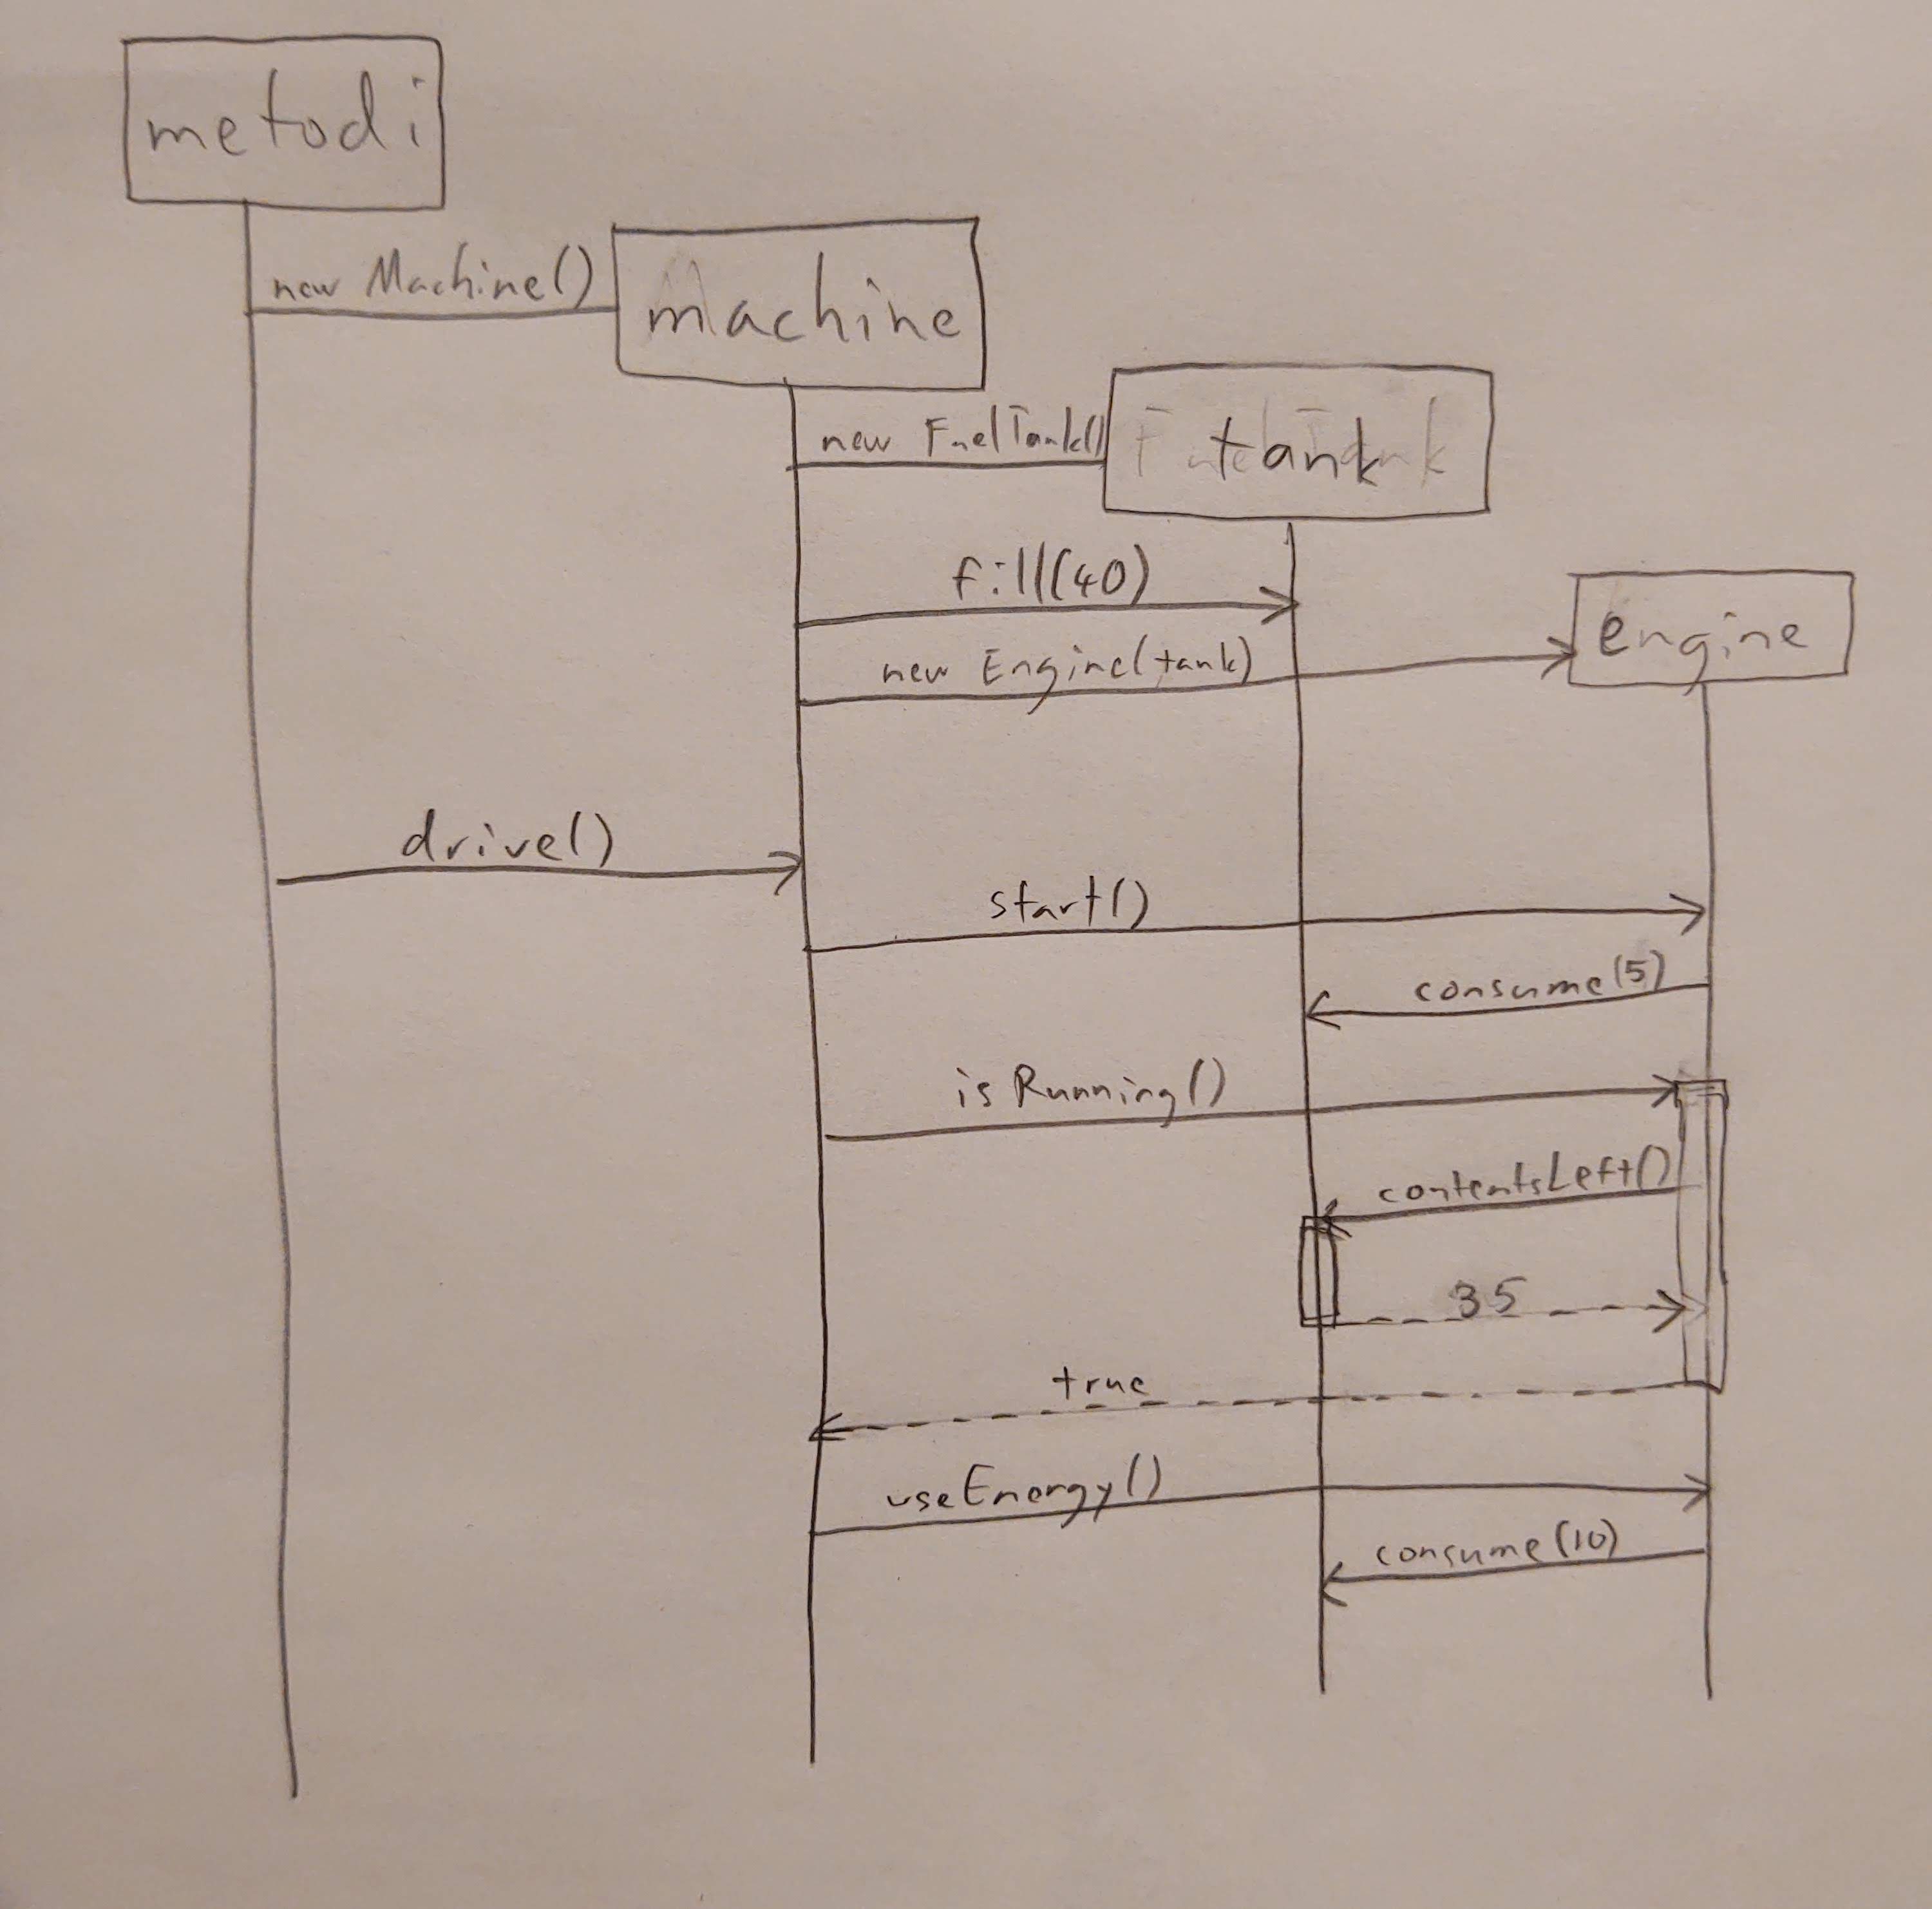 metodi
new Machine()
machine
new FuelTank()
tank
fill(40)
engine
new Engine(tank)
drive()
start()
consume(5)
isRunning()
contentsLeft()
35
true
useEnergy()
consume(10)